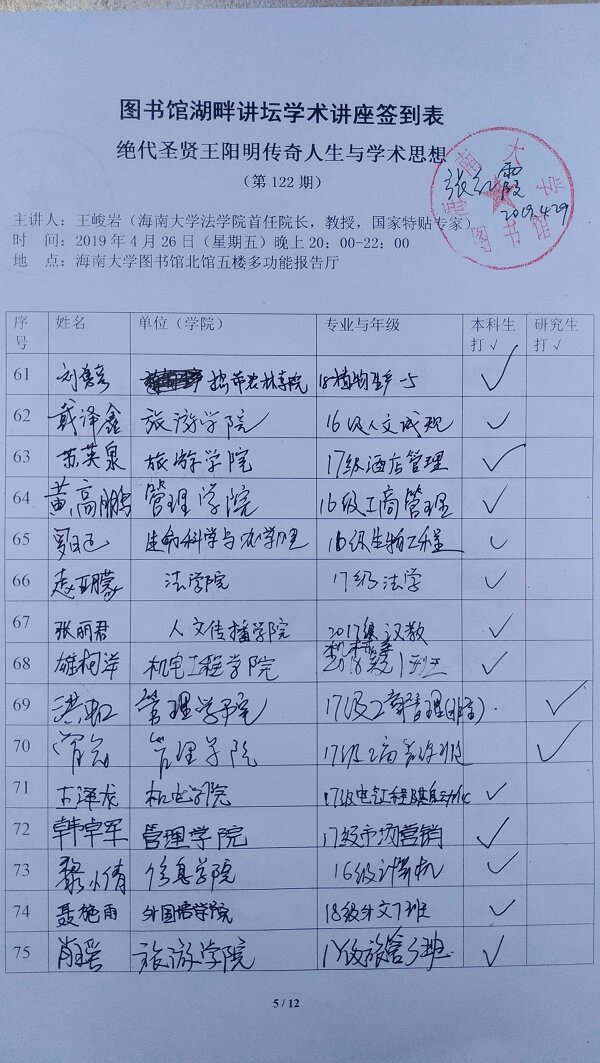 图书馆湖畔讲坛学术讲座签到表
绝代圣贤王阳明传奇人生与学术思想
（第 122 期）
海南大学
图书馆
张红霞
2019.4.29
主讲人：王峻岩（海南大学法学院首任院长，教授，国家特贴专家）
时　间：2019 年 4 月 26 日（星期五）晚上 20：00-22：00
地　点：海南大学图书馆北馆五楼多功能报告厅
序号 姓名 单位（学院） 专业与年级 本科生打√ 研究生打√
61 热带农林学院 √
62 戴泽鑫 旅游学院 16级人文 √
63 苏英泉 旅游学院 17级酒店管理 √
64 黄高鹏 管理学院 16级工商管理 √
65 生命科学与 16级生物工程 √
66 法学院 17级法学 √
67 张丽君 人文传播学院 2017级汉教 √
68 雄柯洋 机电工程学院 2018级1班 √
69 洪虹 管理学院 17级工商管理 √
70 管理学院 17级工商 √
71 古泽龙 机电学院 17级电气工程及其自动化 √
72 韩卓军 管理学院 17级市场营销 √
73 黎小倩 信息学院 16级计算机 √
74 聂施雨 外国语学院 18级外文7班 √
75 肖瑶 旅游学院 √
5 / 12